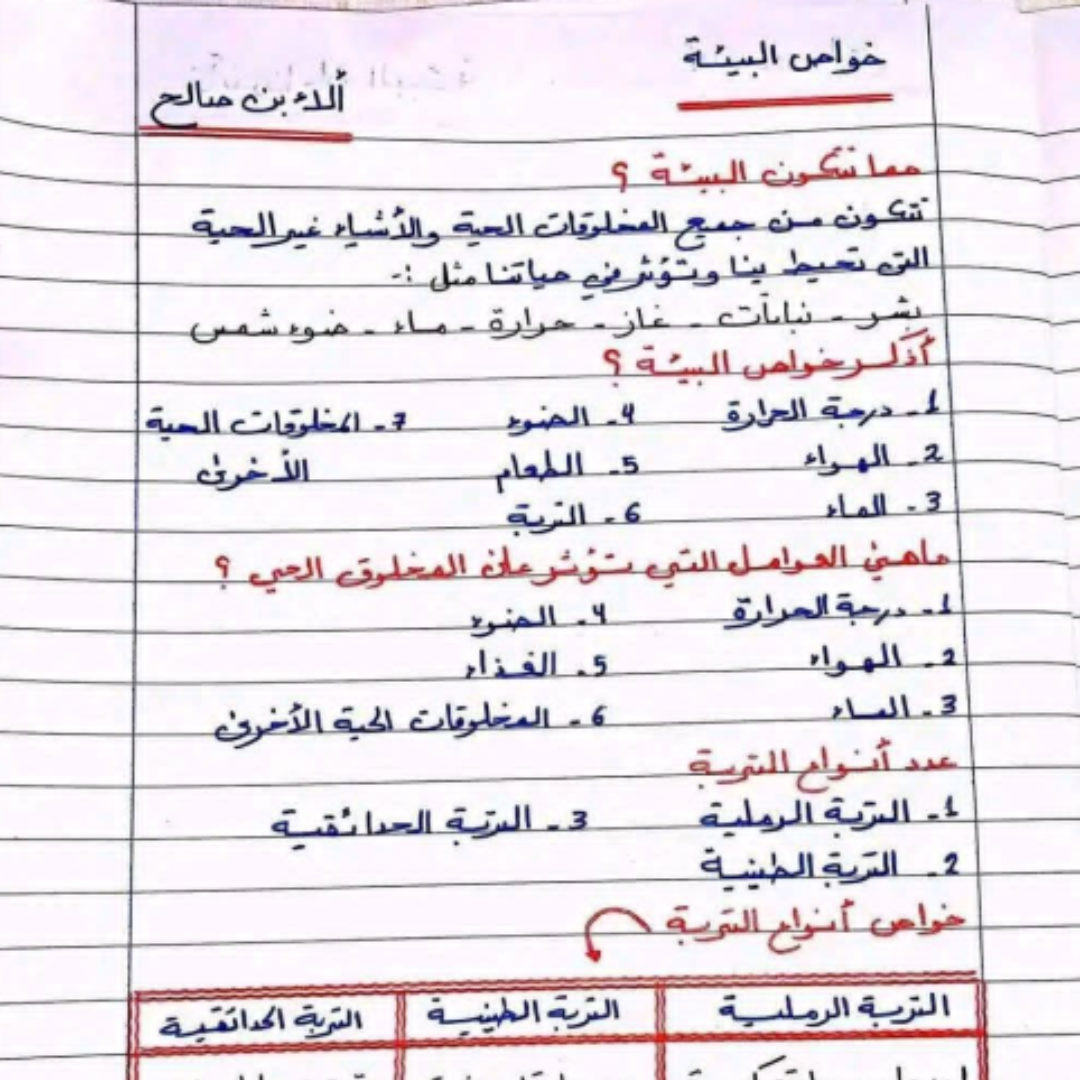 خواص البيئة
ألاء بن صالح
مما تتكون البيئة ؟
تتكون من جميع المخلوقات الحية والأشياء غير الحية
التي تحيط بنا وتؤثر في حياتنا مثل :-
بشر - نباتات - غاز - حرارة - ماء - ضوء شمس
أذكر خواص البيئة ؟
1- درجة الحرارة 4- الضوء 7- المخلوقات الحية
2- الهواء 5- الطعام الأخرى
3- الماء 6- التربة
ماهي العوامل التي تؤثر على المخلوق الحي ؟
1- درجة الحرارة 4- الضوء
2- الهواء 5- الغذاء
3- الماء 6- المخلوقات الحية الأخرى
عدد أنواع التربة
1- التربة الرملية 3- التربة الحدائقية
2- التربة الطينية
خواص أنواع التربة
التربة الرملية التربة الطينية التربة الحدائقية